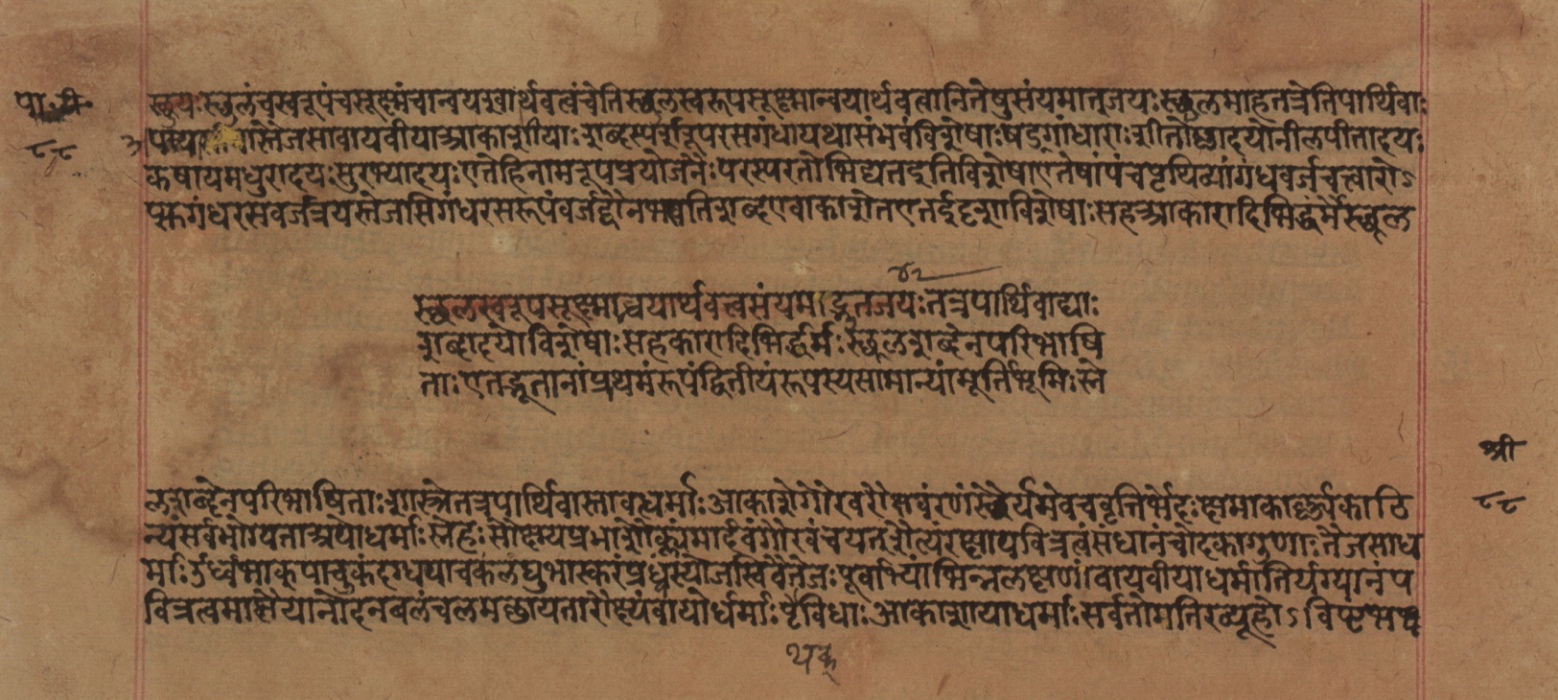 पा. टी.
८८
स्थूयः स्थूलंचस्वरूपंचसूक्ष्मंचान्वयश्चार्थवत्वंचेतिस्थूलस्वरूपसूक्ष्मान्वयार्थवत्वानितेषुसंयमात्तज्जयः स्थूलमाहतत्रेतिपार्थिवाः
स्तैजसावायवीयाआकाशीयाः शब्दस्पर्शरूपरसगंधायथासंभवंविशेषाः षड्गांधाराः शीतोष्णादयोनीलपीतादयः
कषायमधुरादयः सुरभ्यादयः एतेहिनामरूपप्रयोजनैः परस्परतोभिद्यतइतिविशेषाएतेषांपंचपृथिव्यांगंधवर्जंचत्वारोऽ
प्सुगंधरसवर्जंत्रयस्तेजसिगंधरसरूपंवर्जंद्वौनभस्वतिशब्दएवाकाशेतएतईदृशाविशेषाः सहआकारादिभिर्द्धर्मैस्थूल
४२
स्थूलस्वरूपसूक्ष्मान्वयार्थवत्वसंयमाद्भूतजयः तत्रपार्थिवाद्याः
शब्दादयोविशेषाः सहकारादिभिर्द्धर्मैः स्थूलशब्देनपरिभाषि
ताः एतद्भूतानांप्रथमंरूपंद्वितीयंरूपस्यसामान्यांमूर्तिर्भूमिः स्ने
श्री
८८
लशब्देनपरिभाषिताः शास्त्रेतत्रपार्थिवास्तावद्धर्माः आकारोगौरवरौक्ष्यंवरणंस्थैर्यमेवचवृत्तिर्भेदः क्षमाकार्ष्ण्यंकाठि
न्यंसर्वभोग्यताअपोधर्माः स्नेहः सौक्ष्म्यंप्रभाशौक्ल्यंमार्दवंगौरवंचयत्शैत्यंरक्षापवित्रत्वंसंधानंचौदकागुणाः तैजसाध
र्माः ऊर्ध्वंभाक्पाचकंदग्धृपावकंलघुभास्करंप्रध्वंस्योजस्विवैतेजः पूर्वाभ्यांभिन्नलक्षणं। वायवीयाधर्मातिर्यग्यानंप
वित्रत्वमाक्षेपोनोदनंबलंचलमच्छायतारौक्ष्यंवायोर्धर्माः पृविधाः आकाशीयाधर्माः सर्वतोगतिरव्यूहोऽविष्टंभश्च
थक्